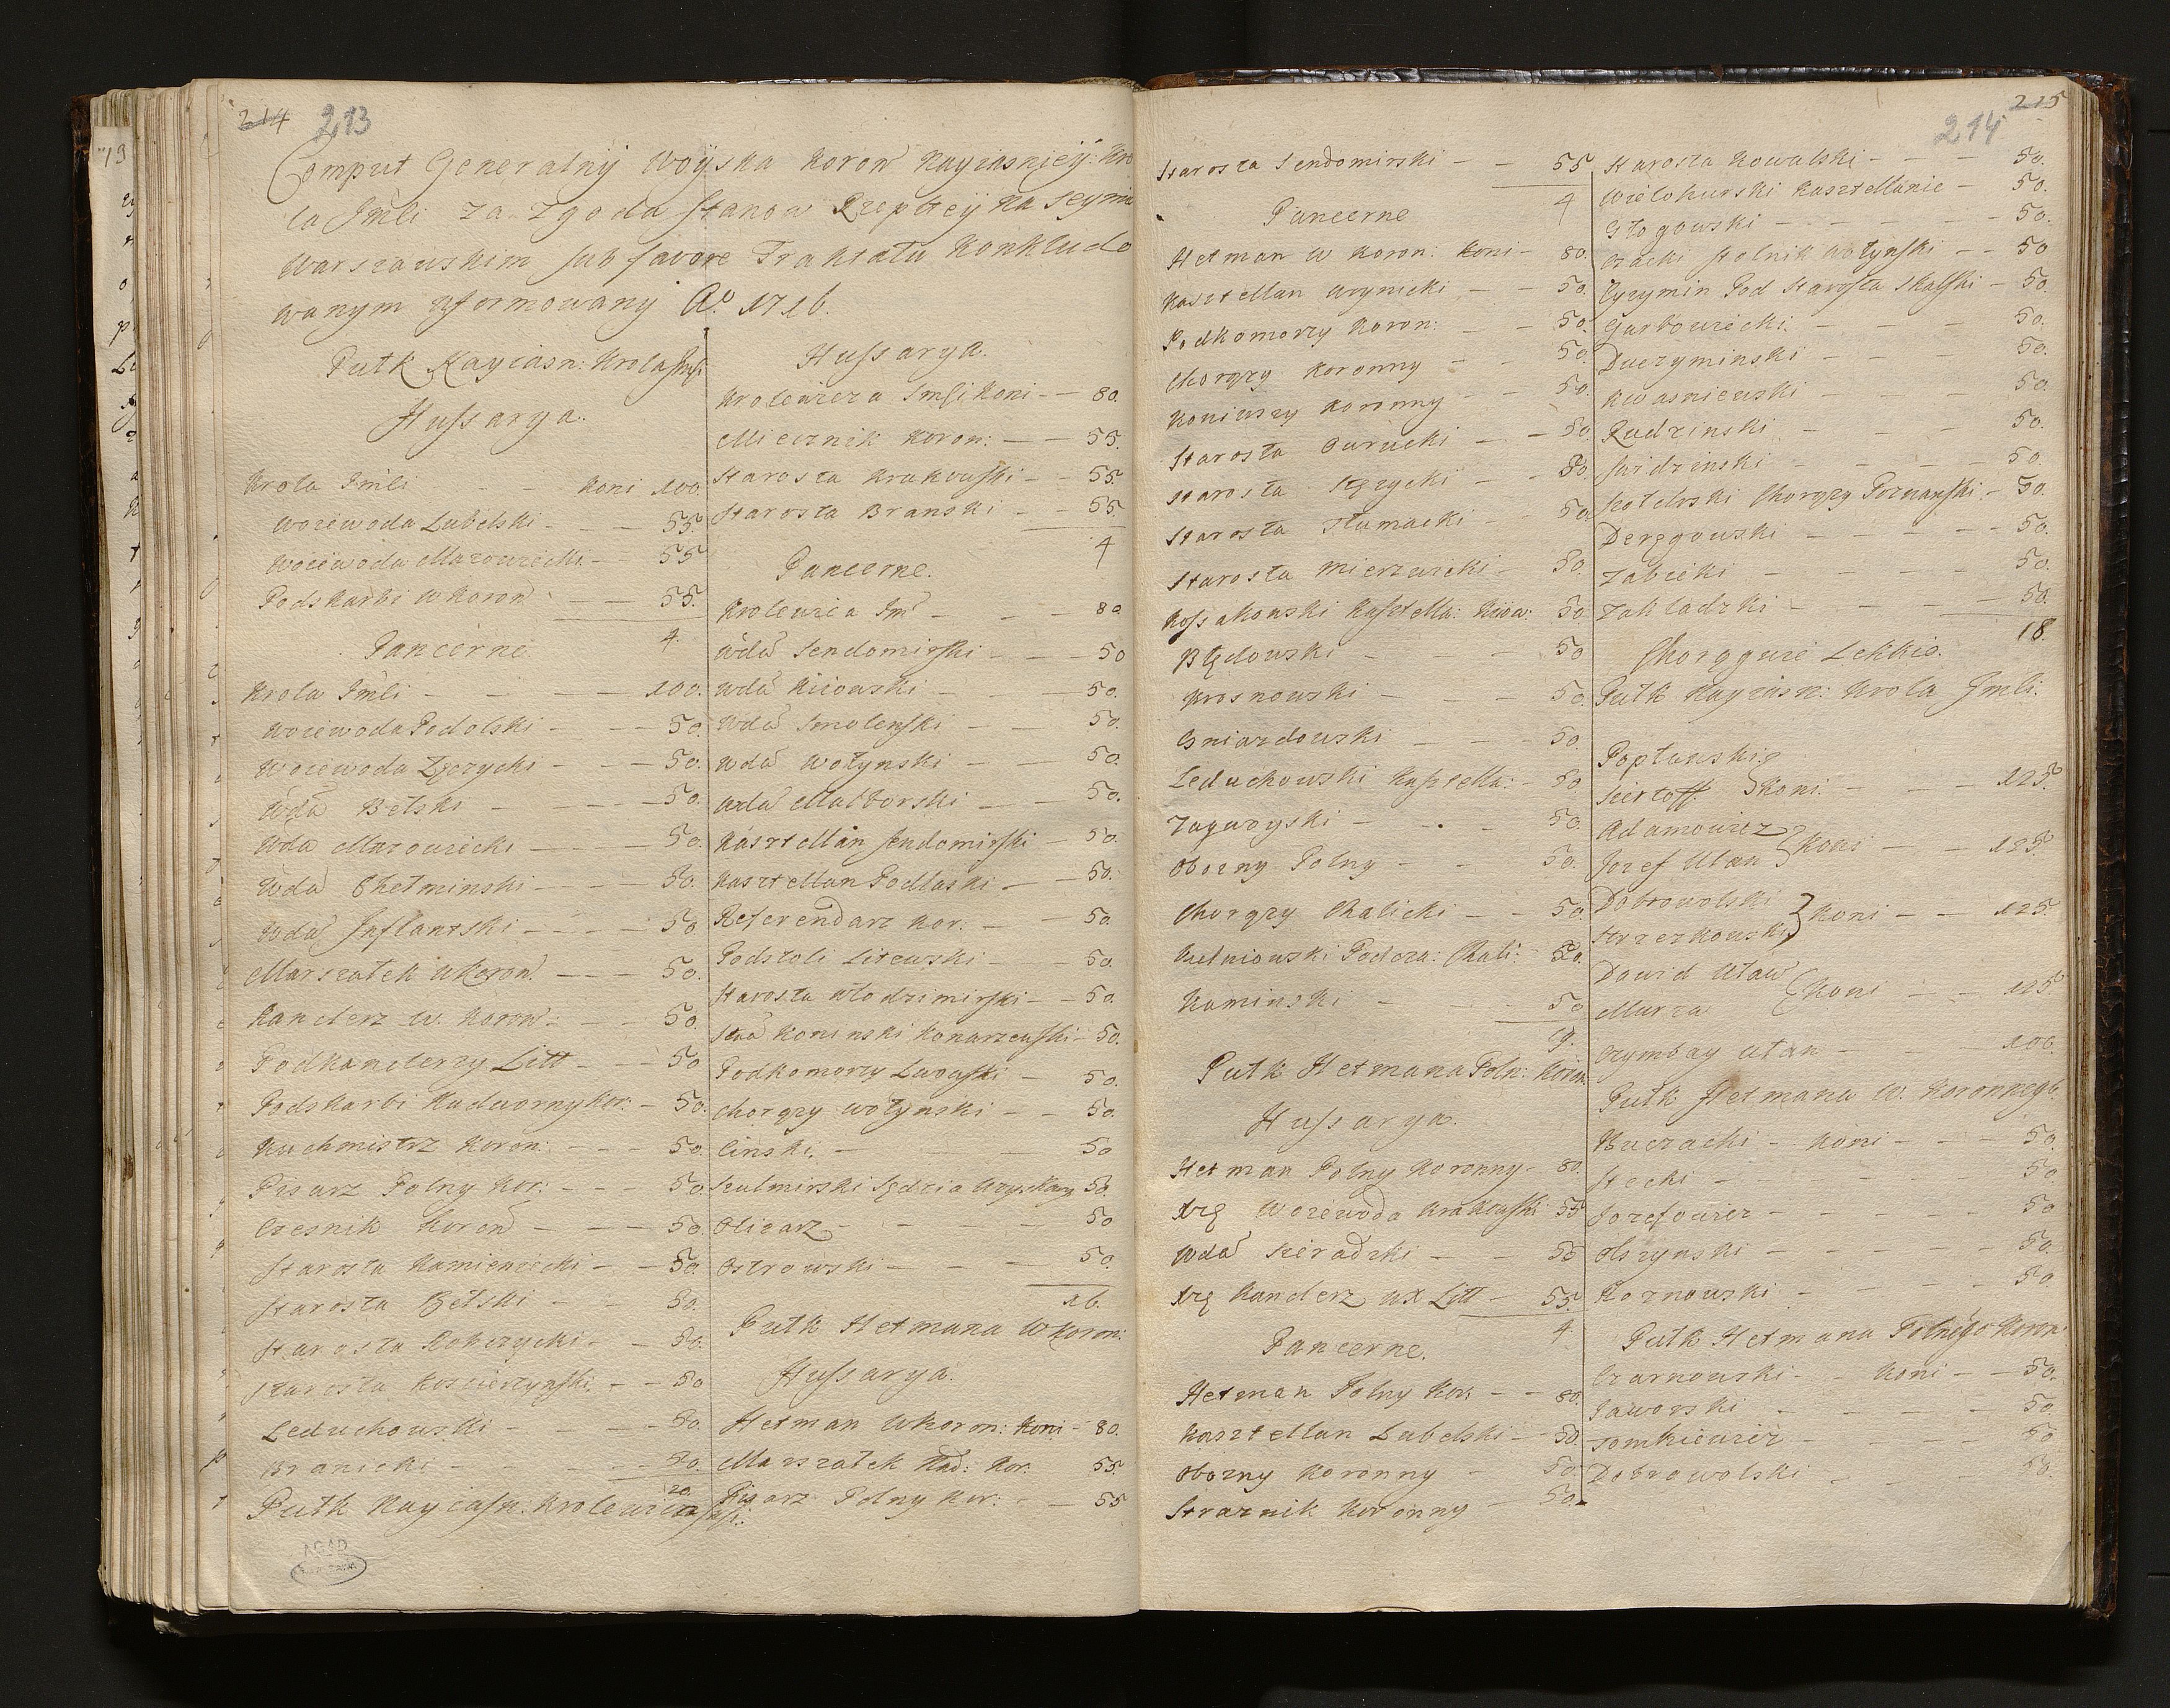 214 213
Comput Generalny Woyska Koron Nayiasnieÿ: Kro
la Jmśi za zgodą Stanow Rzeptey na Seymie
Warszawskim sub favore Traktatu Konkludo
wanym uformowany Ao. 1716.
Pułk Nayiasn: Krola Jmśi
Hussarya.
Krola Jmśi - - Koni 100.
Woiewoda Lubelski - - 55.
Woiewoda Mazowiecki - 55
Podskarbi W Koron - - 55.
4.
Pancerne
Krola Jmśi - - - 100.
Woiewoda Podolski - - - 50.
Woiewoda Łęczycki - - - 50.
Wda Bełski - - - 50.
Wda Mazowiecki - - - 50.
Wda Chełminski - - - 50.
Wda Inflantski - - - 50.
Marszałek W Koron - - - 50.
Kanclerz W. Koron - - 50.
Podkanclerzy Litt - - 50
Podskarbi Nadworny Kor: - 50.
Kuchmistrz Koron: - - - 50.
Pisarz Polny Kor: - - - 50.
Czesnik Koron - - - 50.
Starosta Kamieniecki - - 50.
Starosta Bełski - - 50.
Starosta Robczycki - - 50.
Starosta Koscierzynski - - 50
Leduchowski - - - 50.
Branicki - - - 50.
20
Pułk Nayiasn: Krolewica Jmśi.
Hussarya.
Krolewicza Jmśi Koni - - 80.
Miecznik Koron: - - 55.
Starosta Krakowski - - 55.
Starosta Branski - - 55.
4
Pancerne.
Krolewica Jm - - 80
Wda Sendomirski - - - 50
Wda Kiiowski - - 50.
Wda Smolenski - - 50.
Wda Wołynski - - 50.
Wda Malborski - - 50.
Kasztellan Sendomirski - 50.
Kasztellan Podlaski - - 50.
Referendarz Kor. - - 50
Podstoli Litewski - - 50.
Starosta Włodzimirski - - 50.
Sta Koninski Konarzewski - 50.
Podkomorzy Lwowski - 50.
Chorązy Wołynski - - 50.
Cinski. - - 50
Szulmirski Sędzia 50.
Olizarz - - - - 50
Ostrowski - - - 50.
16.
Pułk Hetmana W Koron:
Hussarya.
Hetman W Koron: Koni - 80.
Marszałek Nad: Kor. 55.
Pisarz Polny Kor: - - 55
215
214
Starosta Sendomirski - - 55
4
Pancerne
Hetman W Koron: Koni - 80.
Kasztellan - - 50.
Podkomorzy Koron: - - 50.
Chorązy Koronny - - 50.
Koniuszy Koronny - - 50.
Starosta - - 50.
Starosta - - 50.
Starosta Tłumacki - - 50.
Starosta - 50.
Kossakowski Kasztella: Kiiow: 50.
Błędowski - - - 50
Krosnowski - - 50.
Gniazdowski - - - 50.
Leduchowski Kasztella: - 50.
Zagwoyski - - - 50.
Obozny Polny - - 50.
Chorązy Chalicki - - 50.
Podcza: Chali: 50.
Kaminski - - - 50
19.
Pułk Hetmana Poln: Koron.
Hussarya.
Hetman Polny Koronny - 80.
Xzę Woiewoda Krakowski 55
Wda Sieradzki - - 55
Xzę Kanclerz WX Litt - 55.
4.
Pancerne.
Hetman Polny Kor: - - 80.
Kasztellan Lubelski - - 50.
Obozny Koronny - 50.
Straznik Koronny - 50.
Starosta Kowalski - - - 50.
Wielohurski Kasztellanic - 50.
Głogowski - - - - 50.
Czacki Stolnik Wołynski - - 50
Pod Starosta Skalski - 50.
Garbowiecki. - - - 50.
Duczyminski - - - 50.
Kwasniewski - - - 50.
Rudzinski - - - 50.
Swidzinski - - - - 50.
Chorązy Poznanski. - 50.
Deręgowski - - - - 50.
Zabicki - - - 50.
Zakladzki - - - 50.
18.
Chorągwie Lekkie.
Pułk Nayiasn: Krola Jmśi.
Popławski
Kirtoff. } Koni. - - - 125.
Adamowicz
Jozef Ułan } Koni - - 125.
Dobrowolski
Strzezkowski } Koni - - 125.
Dawid Ułan
Murza } Koni - - 125.
Czymbay Ułan - - - 100.
Pułk Hetmana W. Koronnego.
Buczacki - Koni - - 50.
Stecki - - - - 50.
Jozefowicz - - - - 50
Olszynski - - - - 50.
Roznowski - - - - 50.
Pułk Hetmana Polnego Koron
Czarnowski - - Koni - - 50.
Jaworski - - - - 50.
Tomkiewicz - - - - 50
Dobrowolski - - 50.